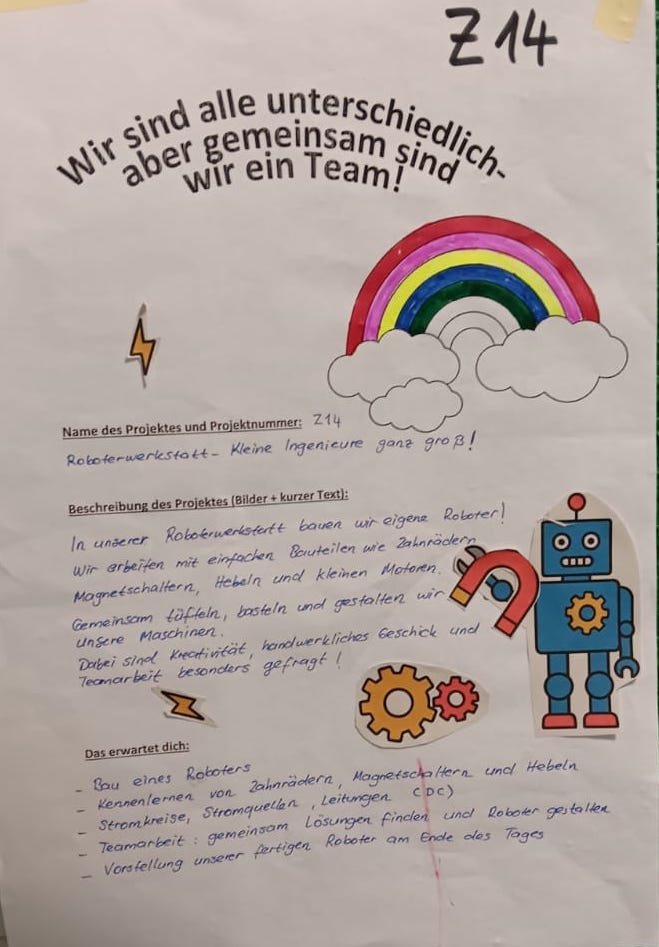 Z 14
Wir sind alle unterschiedlich-
aber gemeinsam sind
wir ein Team!
Name des Projektes und Projektnummer: Z14
Roboterwerkstatt – Kleine Ingenieure ganz groß!
Beschreibung des Projektes (Bilder + kurzer Text):
In unserer Roboterwerkstatt bauen wir eigene Roboter!
Wir arbeiten mit einfachen Bauteilen wie Zahnrädern
Magnetschaltern, Hebeln und kleinen Motoren.
Gemeinsam tüfteln, basteln und gestalten wir
unsere Maschinen.
Dabei sind Kreativität, handwerkliches Geschick und
Teamarbeit besonders gefragt!
Das erwartet dich:
- Bau eines Roboters
- Kennenlernen von Zahnrädern, Magnetschaltern und Hebeln
- Stromkreise, Stromquellen, Leitungen (DC)
- Teamarbeit: gemeinsam Lösungen finden und Roboter gestalten
- Vorstellung unserer fertigen Roboter am Ende des Tages